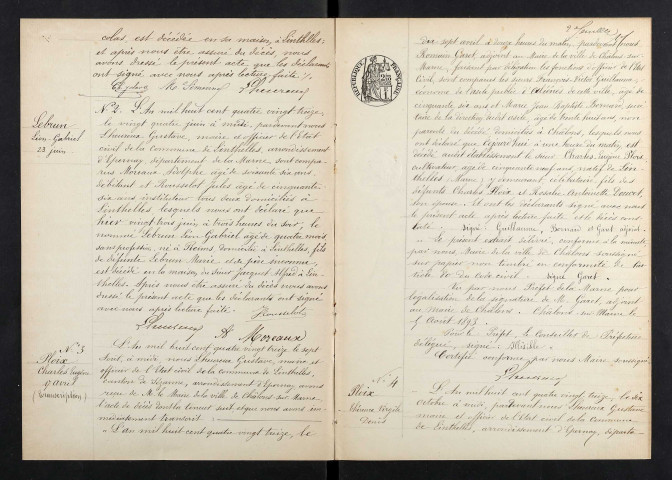 colas, est décédée en sa maison, à Linthelles
et après nous être assuré du décès, nous
avons dressé le présent acte, que les déclarants
ont signé avec nous après lecture faite.
Lheureux
Lebrun
Léon-Gabriel
23 juin
N° 2. L'An mil huit cent quatre vingt treize,
le vingt quatre juin à midi, pardevant nous
Lheureux Gustave, maire et officier de l'Etat
civil de la commune de Linthelles, arrondissement
d'Epernay, département de la Marne, sont compa-
rus Moreaux Adolphe âgé de soixante six ans,
débitant et Rousselot Jules âgé de cinquante
six ans instituteur tous deux domiciliés à
Linthelles lesquels nous ont déclaré que
hier vingt trois juin à trois heures du soir, le
nommé Lebrun Léon-Gabriel âgé de quatre mois
sans profession, né à Reims domicilié à Linthelles, fils
de défunte Lebrun Marie et de père inconnu,
est décédé en la maison du sieur Jacquet Alfred à Lin-
thelles. Après nous être assuré du décès nous avons
dressé le présent acte que les déclarants ont signé
avec nous après lecture faite.
Rousselot
Lheureux A Moreaux
N° 3
Ploix
Charles Eugène
17 avril
(transcription)
L'An mil huit cent quatre vingt treize le sept
Août, à midi, nous Lheureux Gustave, maire et
officier de l'état civil de la commune de Linthelles,
canton de Sézanne, arrondissement d'Epernay, avons
reçu de M. le Maire de la ville de Châlons-sur-Marne
l'acte de décès dont la teneur suit et que nous avons im-
médiatement transcrit.
« L'an mil huit cent quatre vingt treize, le
2e feuillet
RÉPUBLIQUE FRANÇAISE
Dix sept avril à onze heures du matin, pardevant nous
Germain Garet, adjoint au Maire de la ville de Châlons-sur-
Marne, faisant par délégation les fonctions d'officier de l'état
Civil, sont comparus les sieurs François Guillaume,
de cette ville, âgé de
cinquante six ans et Marie Jean Baptiste Bernard,
âgé de trente huit ans, non
parents du décédé domiciliés à Châlons, lesquels nous
ont déclaré que cejourd'hui à une heure du matin, est
décédé audit établissement le sieur Charles Eugène Ploix,
cultivateur, âgé de cinquante neuf ans, natif de Lin-
thelles, Marne, y demeurant, célibataire, fils des
défunts Charles Ploix et Rosalie Antoinette
son épouse. Et ont les déclarants signé avec nous
le présent acte après lecture faite et le décès cons-
taté. Signé Guillaume, Bernard et Garet adjoint.
« Le présent extrait délivré, conforme à la minute,
par nous, Maire de la ville de Châlons soussigné,
sur papier non timbré en conformité de l'ar-
ticle 80 du code civil. Signé Garet.
Vu par nous Préfet de la Marne pour
légalisation de la signature de M. Garet, adjoint
au Maire de Châlons. Châlons-sur-Marne le
5 Août 1893.
Pour le Préfet, le Conseiller de Préfecture
délégué, signé
Certifié conforme par nous Maire soussigné
Lheureux
N° 4
Ploix
Denis
L'An mil huit cent quatre vingt treize, le dix
octobre à midi, pardevant nous Lheureux Gustave
maire et officier de l'état civil de la Commune
de Linthelles, arrondissement d'Epernay, départe-